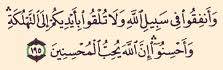 وَأَنفِقُوا۟ فِى سَبِيلِ ٱللَّهِ وَلَا تُلْقُوا۟ بِأَيْدِيكُمْ إِلَى ٱلتَّهْلُكَةِ
وَأَحْسِنُوٓا۟ إِنَّ ٱللَّهَ يُحِبُّ ٱلْمُحْسِنِينَ ١٩٥